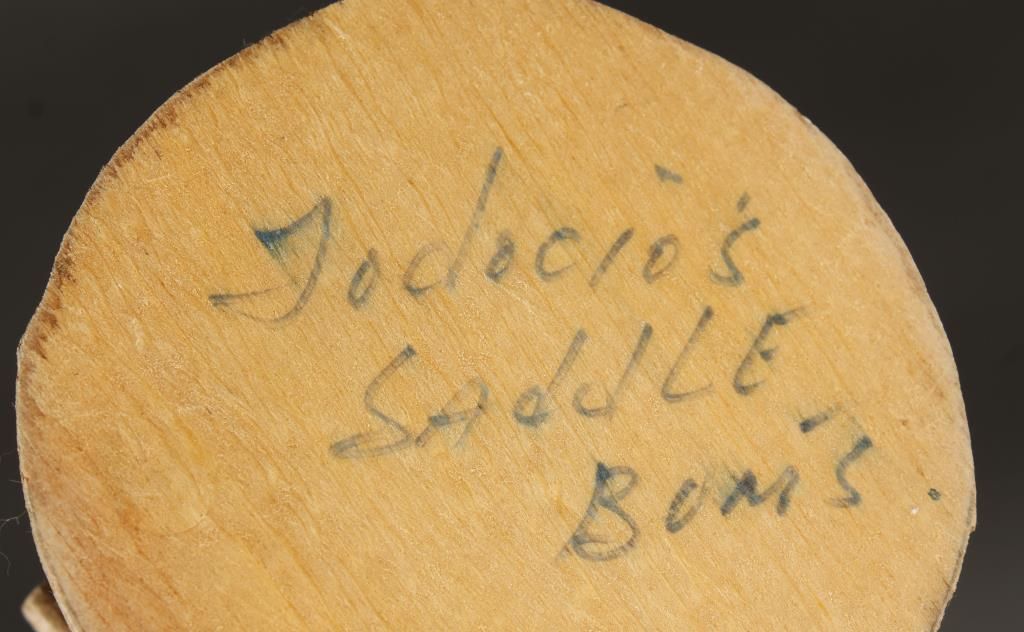 Jodocio's
SAddLE
BUM'S.